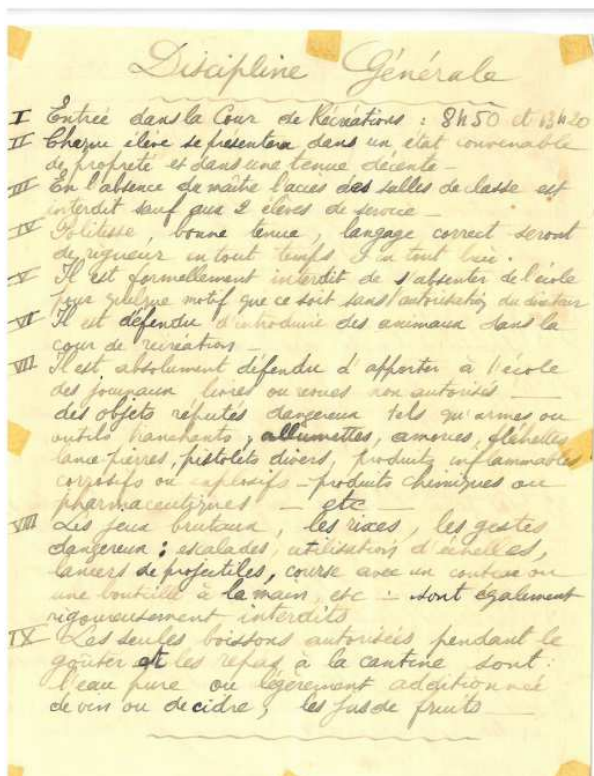 Discipline Générale
I Entrée dans la Cour de Récréations : 8h50 et 13h20
II Chaque élève se présentera dans un état convenable
de propreté et dans une tenue décente –
III En l'absence du maître l'accès des salles de classe est
interdit sauf aux 2 élèves de service –
IV Politesse, bonne tenue, langage correct seront
de rigueur en tout temps et en tout lieu.
V Il est formellement interdit de s'absenter de l'école
pour quelque motif que ce soit sans l'autorisation du directeur
VI Il est défendu d'introduire des animaux dans la
cour de récréation –
VII Il est absolument défendu d'apporter à l'école
des journaux livres ou revues non autorisés —
des objets réputés dangereux tels qu'armes ou
outils tranchants, allumettes, amorces, fléchettes
lance-pierres, pistolets divers, produits inflammables
corrosifs ou explosifs – produits chimiques ou
pharmaceutiques — etc —
VIII Les jeux brutaux, les rixes, les gestes
dangereux : escalades, utilisation d'échelles,
lancers de projectiles, course avec un couteau ou
une bouteille à la main, etc – sont également
rigoureusement interdits
IX – Les seules boissons autorisées pendant le
goûter et les repas à la cantine sont :
l'eau pure ou légèrement additionnée
de vin ou de cidre, les jus de fruits —